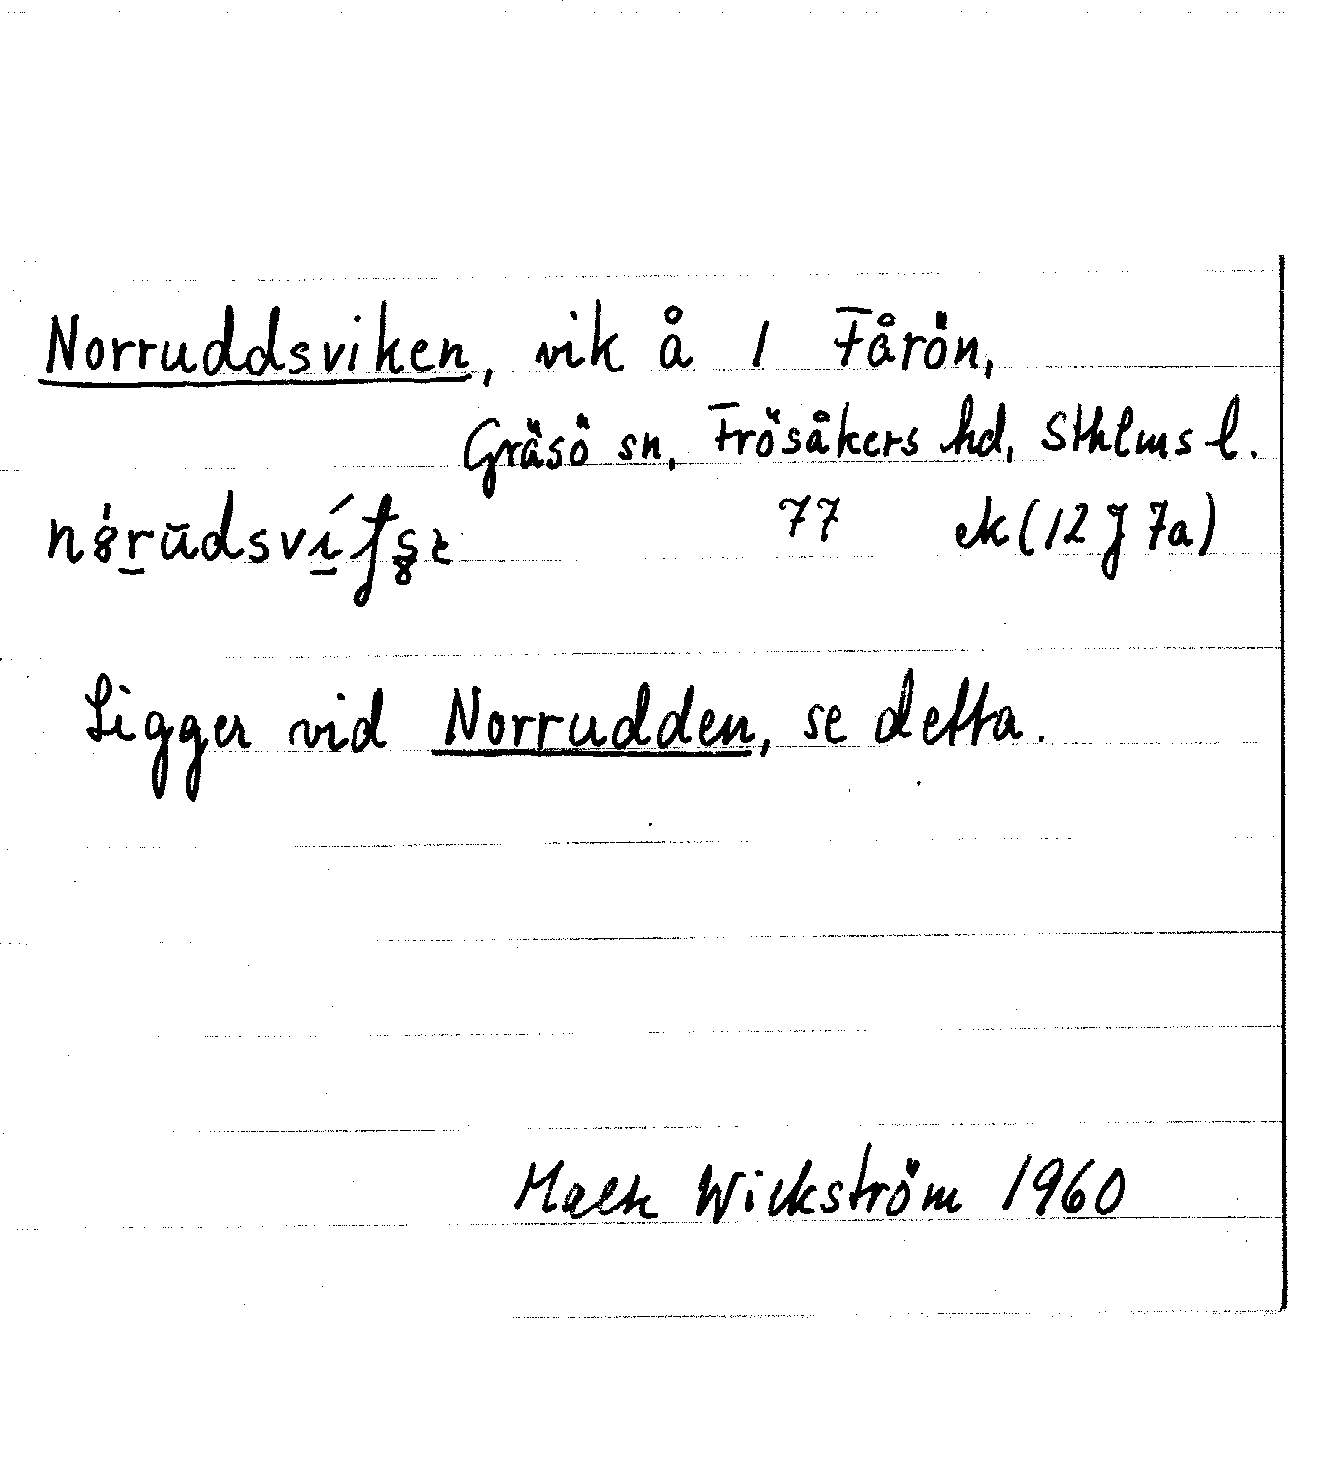 Norruddsviken, vik å 1 Fårön,
Gräsö sn, Frösåkers hd, Sthlms l.
77 ek (12 J 7a)
Ligger vid Norrudden, se detta.
Wickström 1960